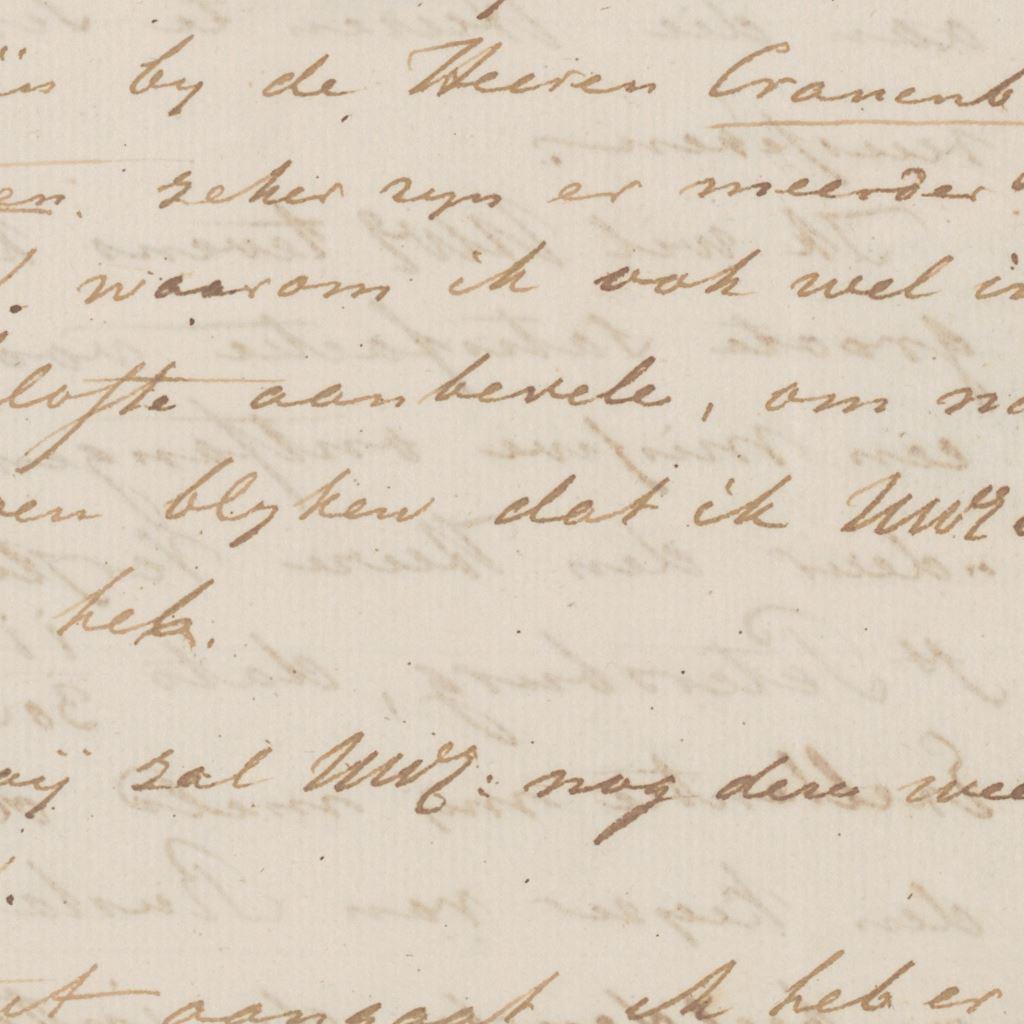 by de Heeren Cranenb
en. zeker zyn er meerder
waarom ik ook wel in
lofte aanbevele, om na
ven blyken dat ik UWE
heb.
zal UWE: nog dere wee
aangaat ik heb er